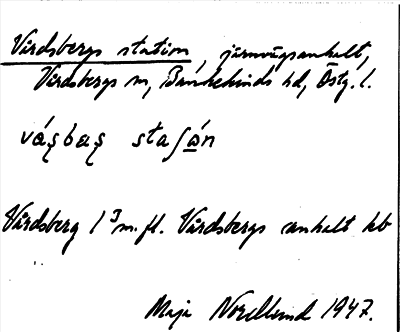 Vårdsbergs station, järnvägsanhalt,
Vårdsbergs sn, Bankekinds hd, Östg. l.
våʂbaʂ staʃån
Vårdsberg 1 3 m.fl. Vårdsbergs anhalt kb
Maja Nordlund 1947.